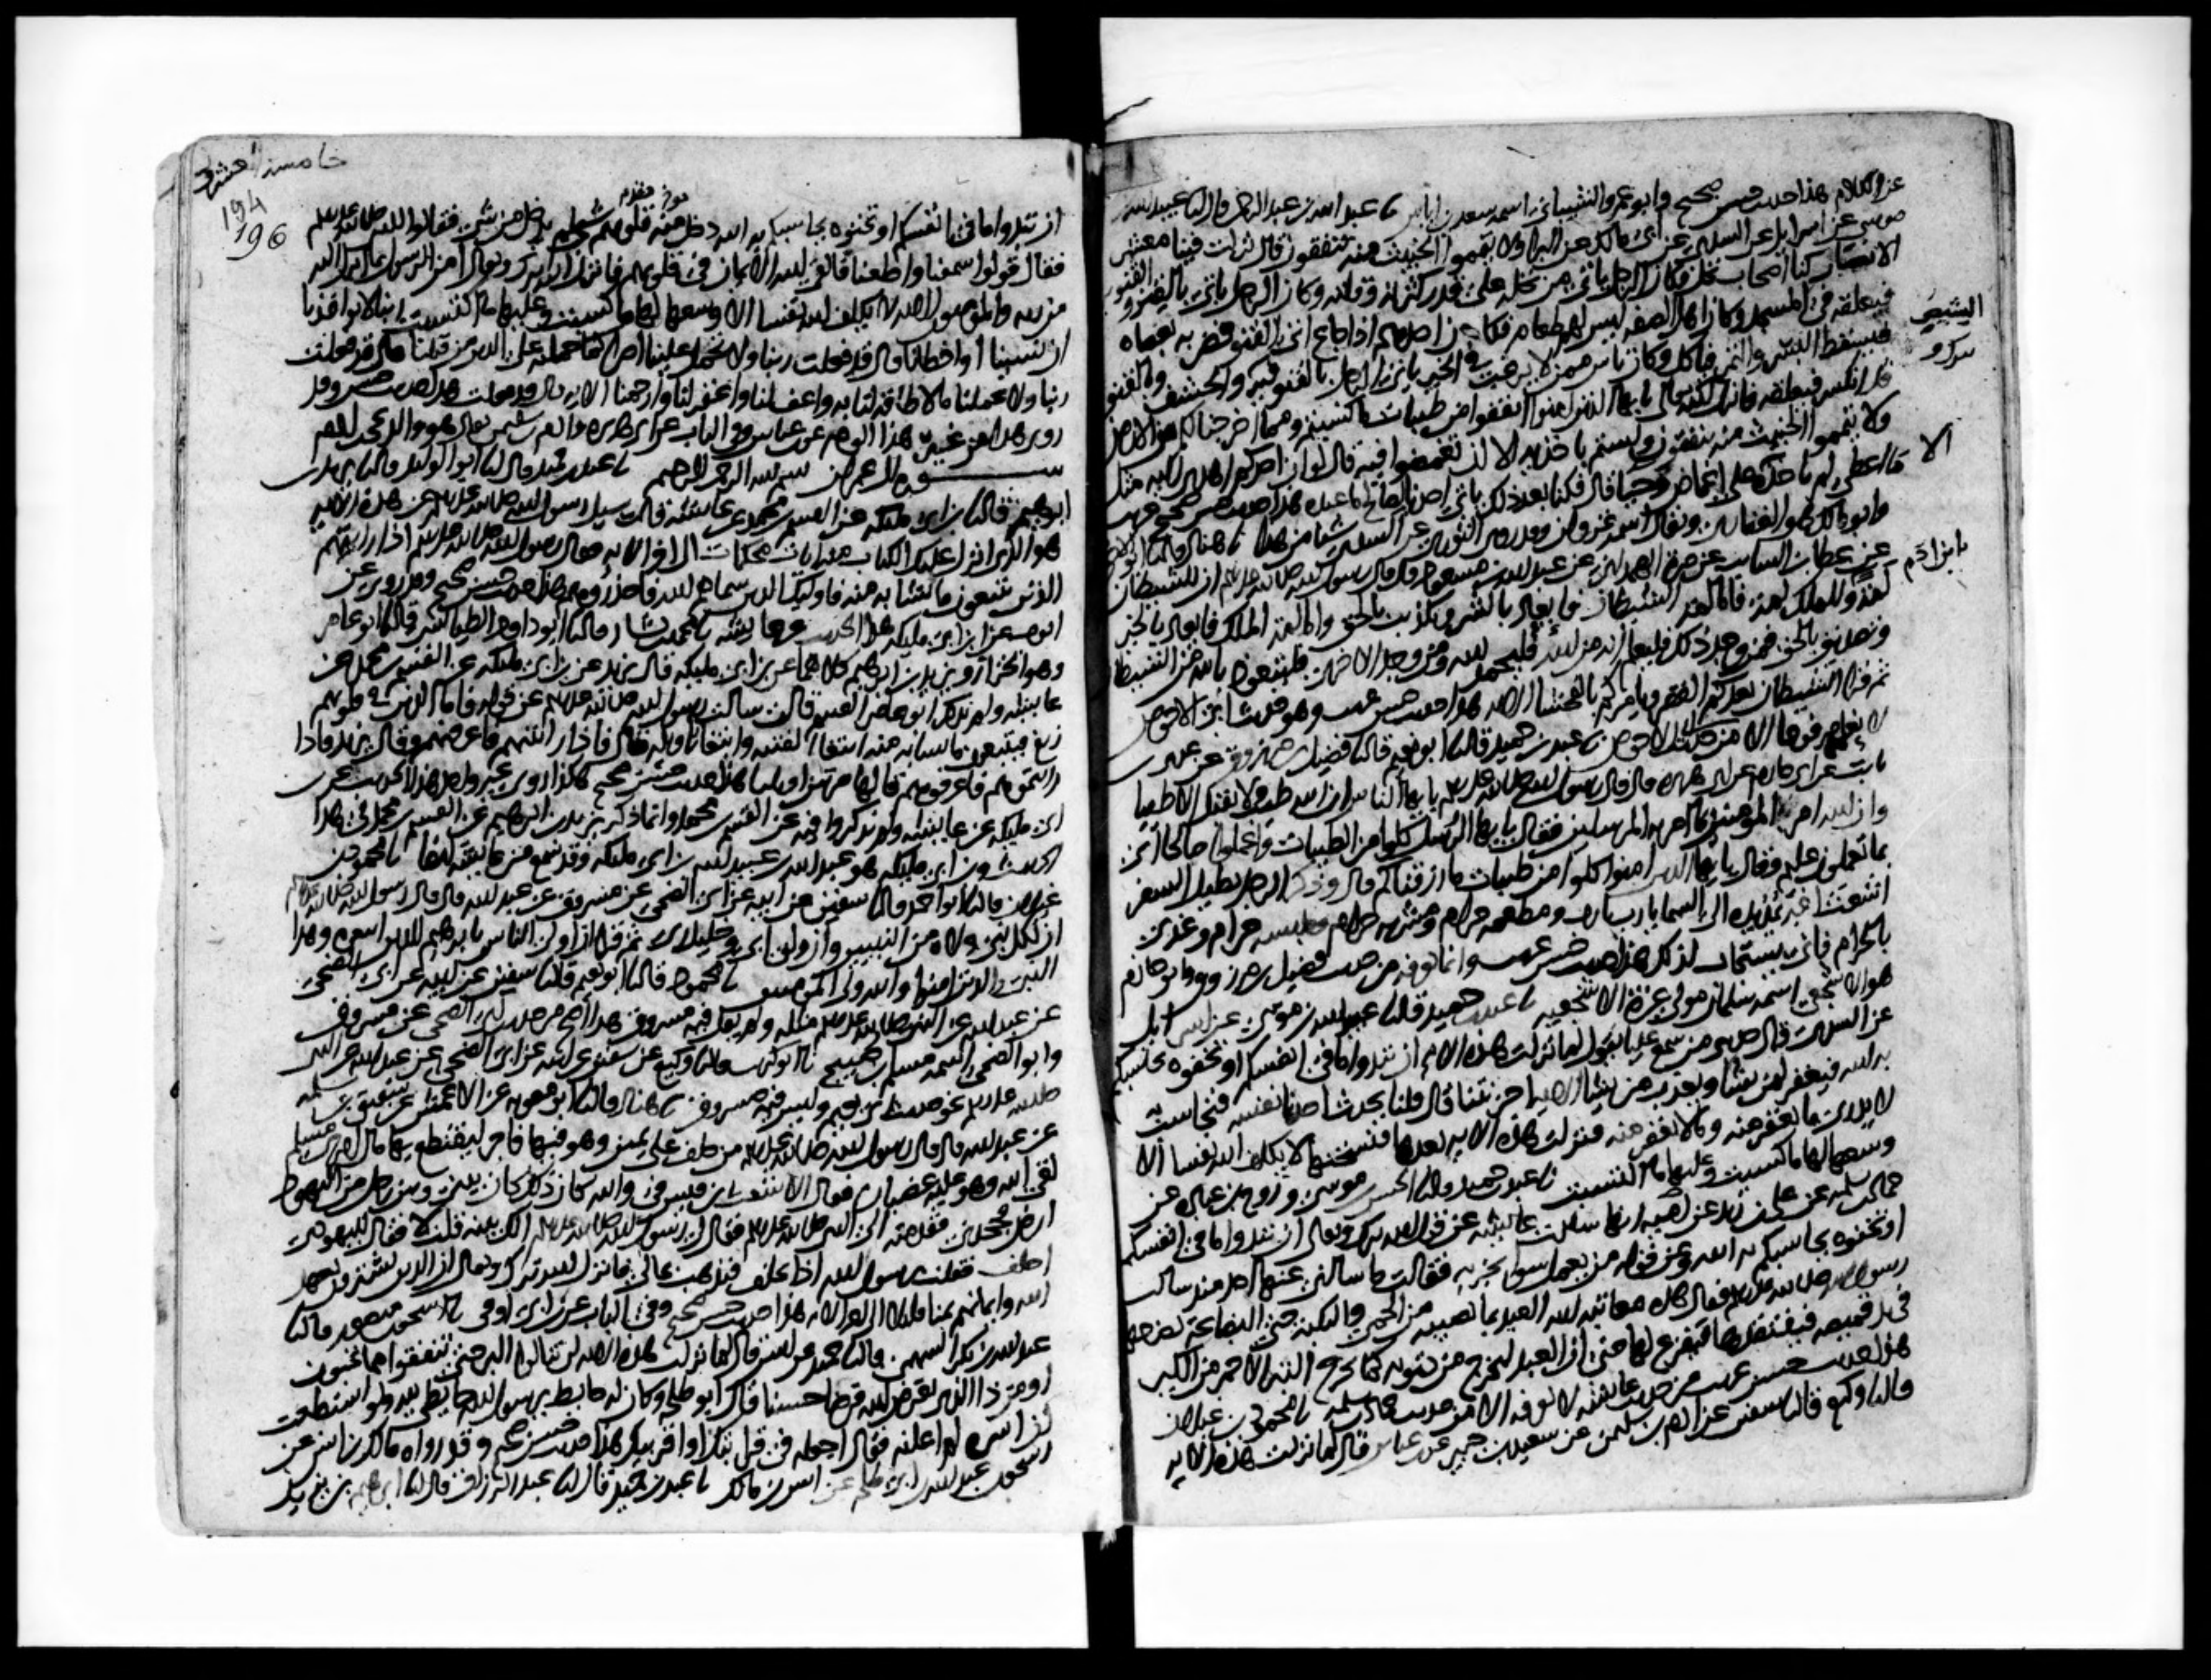 عن الكلام هذا حديث حسن صحيح وابو عمرو الشيباني اسمه سعد بن اياس نا عبد الله بن عبد الرحمن قال انا عبيد الله بن
موسى عن اسرايل عن السدي عن ابي مالك عن البراء ولا تيمموا الخبيث منه تنفقون قال نزلت فينا معشر
الانصار كنا اصحاب نخل فكان الرجل ياتي من نخله على قدر كثرته وقلته وكان الرجل ياتي بالقنو والقنوين
فيعلقه في المسجد وكان اهل الصفه ليس لهم طعام فكان احدهم اذا جاع اتى القنو فضربه بعصاه
فيسقط البسر والتمر فياكل وكان ناس ممن لا يرغب في الخير ياتي الرجل بالقنو فيه والحشف وبالقنو
قد انكسر فيعلقه فانزل الله تعالى يا ايها الذين امنوا انفقوا من طيبات ما كسبتم ومما اخرجنا لكم من الارض
ولا تيمموا الخبيث منه تنفقون ولستم باخذيه الا ان تغمضوا فيه قال لو ان احدكم اهدي اليه مثل
ما اعطى لم ياخذه على اغماض وحيا قال فكنا بعد ذلك ياتي احدنا بصالح ما عنده هذا حديث حسن صحيح غريب
وابو مالك هو الغفاري ويقال اسمه غزوان وقد روى الثوري عن السدي شيا من هذا نا هناد قال نا ابو الاحوص
عن عطا بن السائب عن مرة الهمداني عن عبد الله بن مسعود قال قال رسول الله صلى الله عليه وسلم ان للشيطان
لمة وللملك لمة فاما لمة الشيطان فايعاد بالشر وتكذيب بالحق واما لمة الملك فايعاد بالخير
وتصديق بالحق فمن وجد ذلك فليعلم انه من الله فليحمد الله ومن وجد الاخرى فليتعوذ بالله من الشيطان
ثم قرا الشيطان يعدكم الفقر ويامركم بالفحشا الايه هذا حديث حسن غريب وهو حديث ابي الاحوص
لا نعلمه مرفوعا الا من حديث ابي الاحوص نا عبد بن حميد قال نا ابو نعيم قال نا فضيل بن مرزوق عن عدي بن
ثابت عن ابي حازم عن ابي هريره قال قال رسول الله صلى الله عليه وسلم يا ايها الناس ان الله طيب لا يقبل الا طيبا
وان الله امر المومنين بما امر به المرسلين فقال يا ايها الرسل كلوا من الطيبات واعملوا صالحا اني
بما تعملون عليم وقال يا ايها الذين امنوا كلوا من طيبات ما رزقناكم قال وذكر الرجل يطيل السفر
اشعث اغبر يمد يده الى السما يا رب يا رب ومطعمه حرام ومشربه حرام وملبسه حرام وغذي
بالحرام فانى يستجاب لذلك هذا حديث حسن غريب وانما نعرفه من حديث فضيل بن مرزوق وابو حازم
هو الاشجعي اسمه سلمان مولى عزة الاشجعيه نا عبد بن حميد قال نا عبيد الله بن موسى عن اسرايل
عن السدي قال حدثني من سمع عليا يقول لما نزلت هذه الايه ان تبدوا ما في انفسكم او تخفوه يحاسبكم
به الله فيغفر لمن يشا ويعذب من يشا الايه احزنتنا قال قلنا يحدث احدنا نفسه فيحاسب به
لا يدري ما يغفر منه وما لا يغفر منه فنزلت هذه الايه بعدها فنسختها لا يكلف الله نفسا الا
وسعها لها ما كسبت وعليها ما اكتسبت نا عبد بن حميد قال نا الحسن بن موسى وروح بن عباده عن
حماد بن سلمه عن علي بن زيد عن اميه انها سالت عايشه عن قول الله تبارك وتعالى ان تبدوا ما في انفسكم
او تخفوه يحاسبكم به الله وعن قوله من يعمل سوا يجز به فقالت ما سالني عنها احد منذ سالت
رسول الله صلى الله عليه وسلم فقال هذه معاتبة الله العبد بما يصيبه من الحمى والنكبة حتى البضاعة يضعها
في يد قميصه فيفتقدها فيفزع لها حتى ان العبد ليخرج من ذنوبه كما يخرج التبر الاحمر من الكير
هذا حديث حسن غريب من حديث عايشه لا نعرفه الا من حديث حماد بن سلمه نا محمود بن غيلان
قال نا وكيع قال نا سفين عن ادم بن سليمن عن سعيد بن جبير عن ابن عباس قال لما نزلت هذه الايه
الا
يا ابن ادم
خامس عشر
194
196
ان تبدوا ما في انفسكم او تخفوه يحاسبكم به الله دخل قلوبهم منه شي لم يدخل من شي فقالوا للنبي صلى الله عليه وسلم
فقال قولوا سمعنا واطعنا فالقى الله الايمان في قلوبهم فانزل الله تبارك وتعالى امن الرسول بما انزل اليه
من ربه والمومنون الايه لا يكلف الله نفسا الا وسعها لها ما كسبت وعليها ما اكتسبت ربنا لا تواخذنا
ان نسينا او اخطانا قال قد فعلت ربنا ولا تحمل علينا اصرا كما حملته على الذين من قبلنا قال قد فعلت
ربنا ولا تحملنا ما لا طاقة لنا به واعف عنا واغفر لنا وارحمنا الايه قال قد فعلت هذا حديث حسن وقد
روي هذا من غير هذا الوجه عن ابن عباس وفي الباب عن ابي هريره
سورة ال عمران بسم الله الرحمن الرحيم نا عبد بن حميد قال نا ابو الوليد قال نا يزيد بن
ابرهيم قال نا ابن ابي مليكه عن القسم بن محمد عن عايشه قالت سئل رسول الله صلى الله عليه وسلم عن هذه الايه
هو الذي انزل عليك الكتاب منه ايات محكمات الى اخر الايه فقال رسول الله صلى الله عليه وسلم اذا رايتم
الذين يتبعون ما تشابه منه فاوليك الذين سماهم الله فاحذروهم هذا حديث حسن صحيح وقد روي عن
ايوب عن ابن ابي مليكه هذا الحديث عن عايشه نا محمد بن بشار قال نا ابو داود الطيالسي قال نا ابو عامر
وهو الخزاز ويزيد بن ابرهيم كلاهما عن ابن ابي مليكه قال يزيد عن ابن ابي مليكه عن القسم بن محمد عن
عايشه ولم يذكر ابو عامر القسم قالت سالت رسول الله صلى الله عليه وسلم عن قوله فاما الذين في قلوبهم
زيغ فيتبعون ما تشابه منه ابتغا الفتنه وابتغا تاويله قال فاذا رايتيهم فاعرفيهم وقال يزيد فاذا
رايتموهم فاعرفوهم قالها مرتين او ثلثا هذا حديث حسن صحيح هكذا روى غير واحد هذا الحديث عن
ابن ابي مليكه عن عايشه ولم يذكروا فيه عن القسم بن محمد وانما ذكره يزيد بن ابرهيم عن القسم بن محمد في هذا
الحديث وابن ابي مليكه هو عبد الله بن عبيد الله بن ابي مليكه وقد سمع من عايشه ايضا نا محمود بن
غيلان قال نا ابو احمد قال نا سفين عن ابيه عن ابي الضحى عن مسروق عن عبد الله قال قال رسول الله صلى الله عليه وسلم
ان لكل نبي ولاة من النبيين وان وليي ابي وخليل ربي ثم قرا ان اولى الناس بابرهيم للذين اتبعوه وهذا
النبي والذين امنوا والله ولي المومنين نا محمود قال نا ابو نعيم قال نا سفين عن ابيه عن ابي الضحى
عن عبد الله عن النبي صلى الله عليه وسلم مثله ولم يقل فيه مسروق هذا اصح من حديث ابي الضحى عن مسروق
وابو الضحى اسمه مسلم بن صبيح نا ابو كريب قال نا وكيع عن سفين عن ابيه عن ابي الضحى عن عبد الله عن النبي
صلى الله عليه وسلم نحو حديث ابي نعيم وليس فيه مسروق نا هناد قال نا ابو معويه عن الاعمش عن شقيق بن سلمه
عن عبد الله قال قال رسول الله صلى الله عليه وسلم من حلف على يمين وهو فيها فاجر ليقتطع بها مال امري مسلم
لقي الله وهو عليه غضبان فقال الاشعث بن قيس في والله كان ذلك كان بيني وبين رجل من اليهود
ارض فجحدني فقدمته الى النبي صلى الله عليه وسلم فقال لي رسول الله صلى الله عليه وسلم الك بينه قلت لا فقال لليهودي
احلف فقلت يا رسول الله اذا يحلف فيذهب بمالي فانزل الله تبارك وتعالى ان الذين يشترون بعهد
الله وايمانهم ثمنا قليلا الى اخر الايه هذا حديث حسن صحيح وفي الباب عن ابن ابي اوفى نا اسحق بن منصور قال نا
عبد الله بن بكر السهمي قال نا حميد عن انس قال لما نزلت هذه الايه لن تنالوا البر حتى تنفقوا مما تحبون
او من ذا الذي يقرض الله قرضا حسنا قال ابو طلحه وكان له حايط يا رسول الله حايطي لله ولو استطعت
ان اسره لم اعلنه فقال اجعله في قرابتك او اقربيك هذا حديث حسن صحيح وقد رواه مالك بن انس عن
اسحق بن عبد الله بن ابي طلحه عن انس بن مالك نا عبد بن حميد قال انا عبد الرزاق قال انا ابرهيم بن يزيد